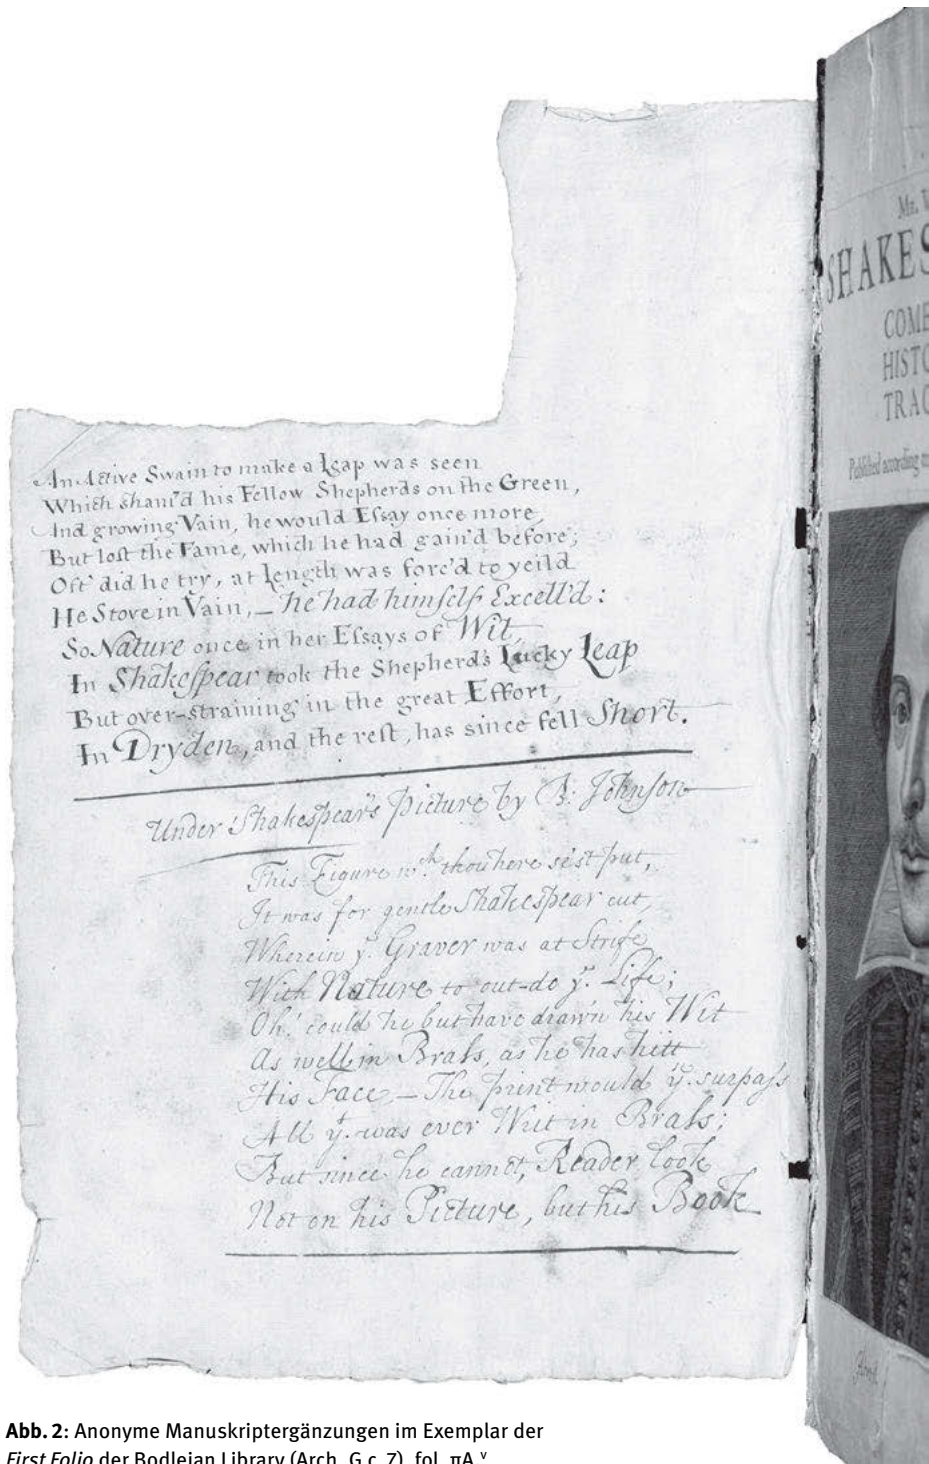 An Active Swain to make a Leap was seen
Which sham'd his Fellow Shepherds on the Green,
And growing Vain, he would Essay once more,
But lost the Fame, which he had gain'd before;
Oft' did he try, at Length was forc'd to yeild
He Stove in Vain, – he had himself Excell'd:
So Nature once in her Essays of Wit,
In Shakespear took the Shepherd's Lucky Leap
But over-straining in the great Effort,
In Dryden, and the rest, has since fell Short.
Under Shakespears Picture by B: Johnson
This Figure wch. thou here se'st put,
It was for gentle Shakespear cut,
Wherein ye. Graver was at Strife
With Nature to out-do ye. Life;
Oh! could he but have drawn his Wit
As well in Brass, as he has hitt
His Face, – The print would yn. surpass
All yt. was ever Writ in Brass;
But since he cannot, Reader look
Not on his Picture, but his Book
Mr.
SHAKES
COME
HISTO
TRAG
Published according
Abb. 2: Anonyme Manuskriptergänzungen im Exemplar der
First Folio der Bodleian Library (Arch. G c. 7), fol. πA v